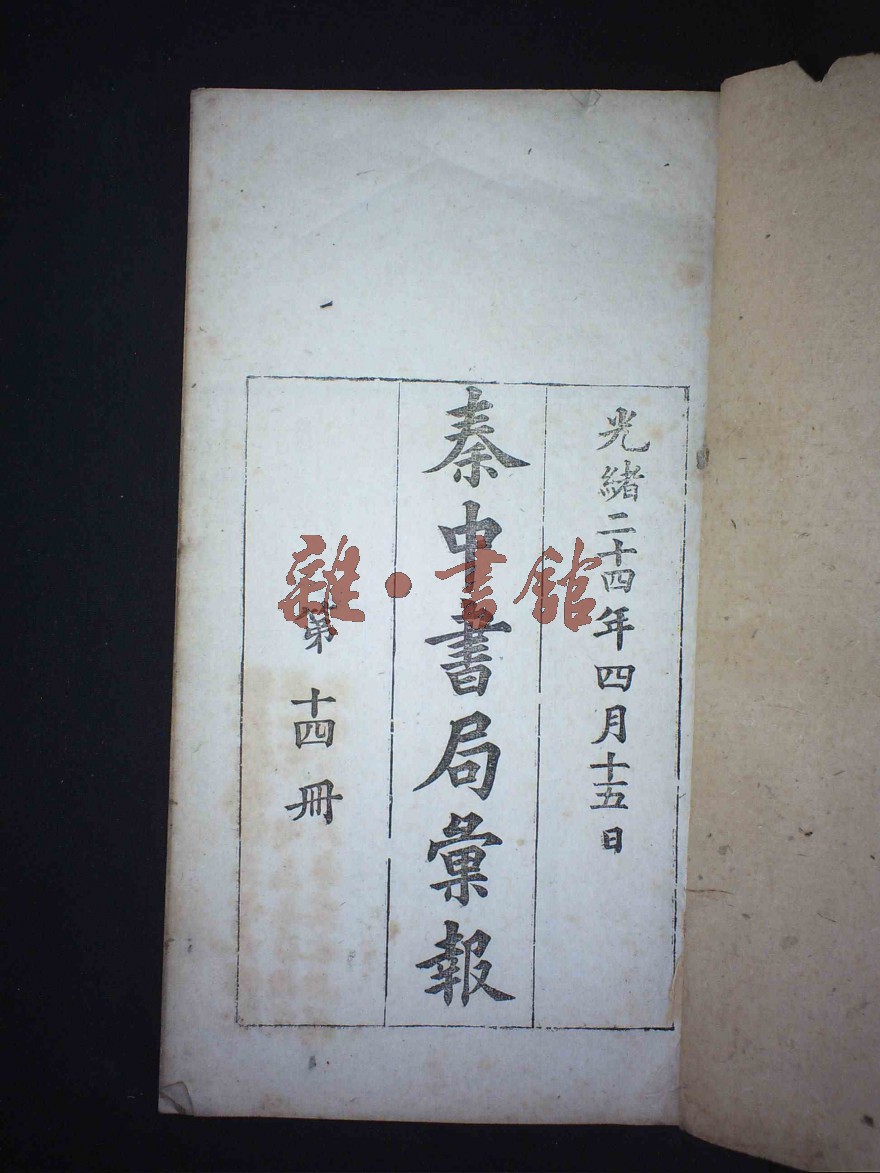 光緒二十四年四月十五日
秦中書局彙報
第十四冊
雜·書館